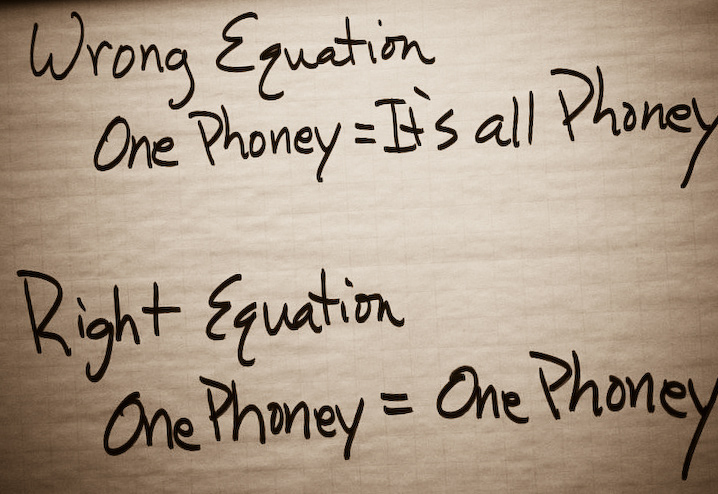 Wrong Equation
One Phoney = It's all Phoney
Right Equation
One Phoney = One Phoney